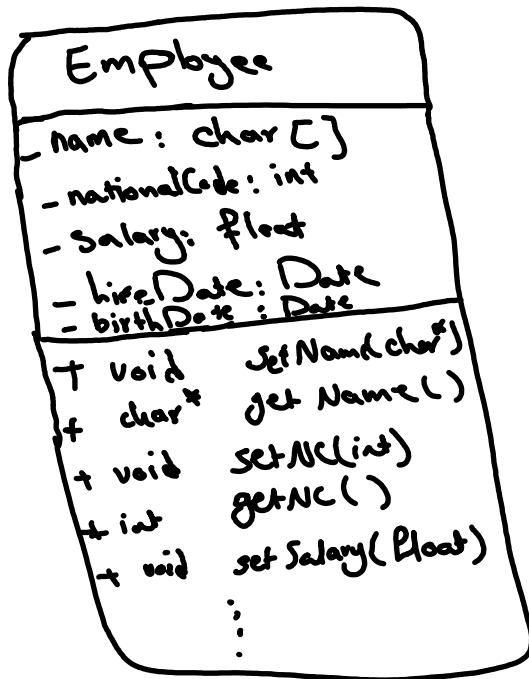 Employee
- name : char []
- nationalCode : int
- Salary : float
- hireDate : Date
- birthDate : Date
+ void setName(char*)
+ char* get Name()
+ void setNC(int)
+ int getNC()
+ void set Salary(float)